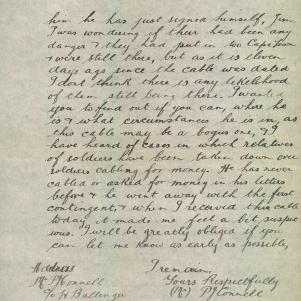 him. he has just signed himself, Jim
I was wondering if their had been any
danger & they had put in to Cape Town
& were still there, but as it is eleven
days ago since the cable was dated
I dont think there is any likelihood
of them still being there. I wanted
you to find out if you can, where he
is & what circumstances he is in, as
this cable may be a bogus one, & I
have heard of cases in which relatives
of soldiers have been taken down over
soldiers cabling for money. He has never
cabled or asked for money in his letters
before & he went away with the first
contingent, & when I received this cable
today it made me feel a bit suspic
ious. I will be greatly obliged if you
can let me know as early as possible,
I remain,
Yours Respectfully
P J Connell
Address
Mr P J Connell